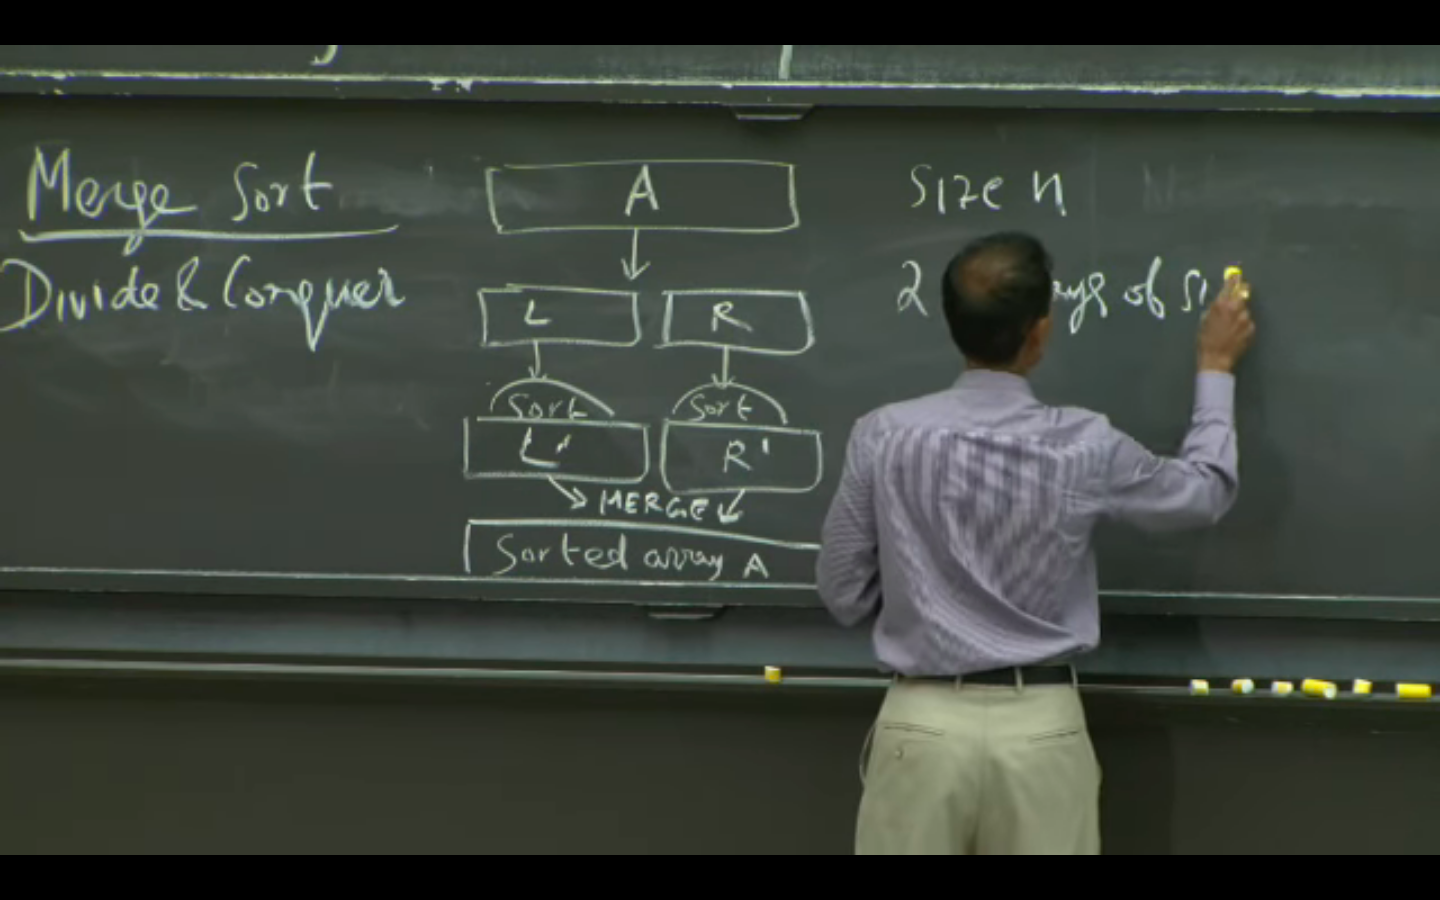 Merge Sort
Divide & Conquer
A
L R
Sort Sort
L' R'
MERGE
Sorted array A
Size n
2 of